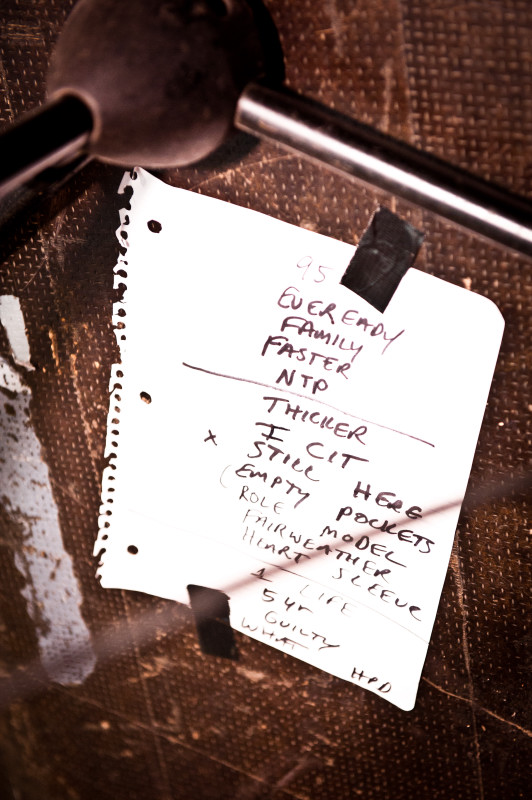 95
EVEREADY
FAMILY
FASTER
NTP
THICKER
I CIT
X STILL HERE
(EMPTY POCKETS
ROLE MODEL
FAIRWEATHER
HEART SLEEVE
1 LIFE
5 yr
GUILTY
WHAT
HPD